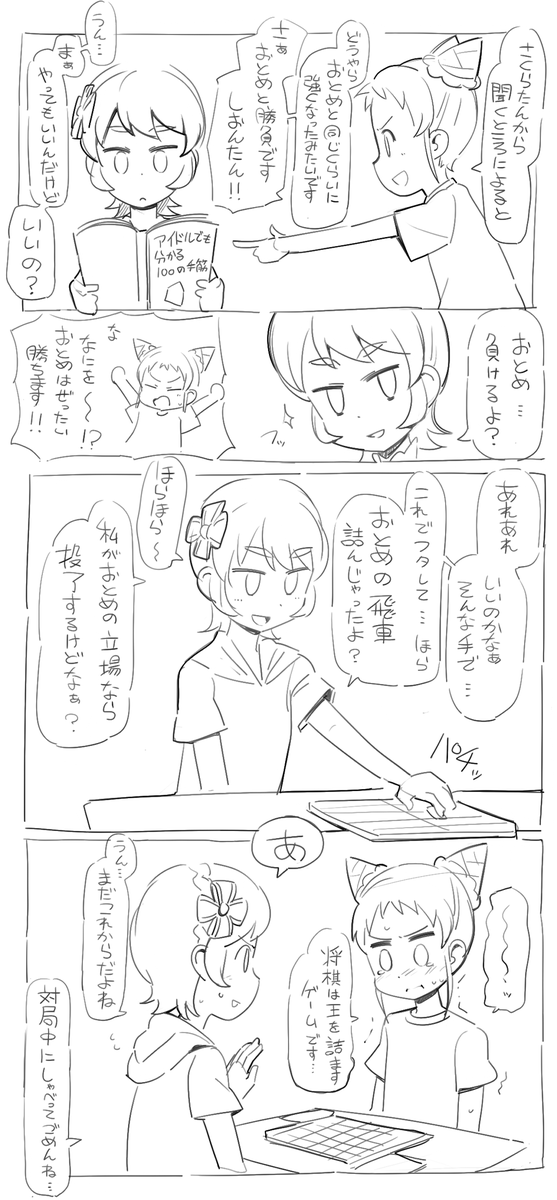 さくらたんから
聞くところによると
どうやら
おとめと同じくらいに
強くなったみたいです
さぁ
おとめと勝負です
しおんたん!!
うん…
まぁ
やってもいいんだけど
いいの?
アイドルでも
分かる
100の手筋
おとめ…
負けるよ?
フッ
な
なにを〜!?
おとめはぜったい
勝ちます!!
あれあれ
いいのかなぁ
そんな手で…
これでフタして…ほら
おとめの飛車
詰んじゃったよ?
ほらほら〜
私がおとめの立場なら
投了するけどなぁ?
パチッ
〜〜〜ッ
将棋は王を詰ます
ゲームです…
あ
うん…
まだこれからだよね
対局中にしゃべってごめんね…